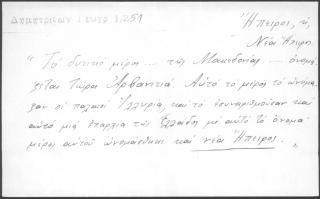 Δημητριέων 1 κωτρ 1.251
Ἤπειρος, ἡ,
Νέα Ἤπειρος
"Τὸ δυτικὸ μέρος ... τῆς Μακεδονίας ... ὀνομά
ζεται τώρα Ἀρβανιτιά. Αὐτὸ τὸ μέρος τὸ ὠνόμα
ζαν οἱ παλαιοὶ Ἰλλυρία, καὶ τὸ ἐσυναριθμοῦσαν καὶ
αὐτὸ μιὰ ἐπαρχία τῆς Ἑλλάδος μὲ αὐτὸ τὸ ὄνομα
μέρος αὐτοῦ ὠνομάσθηκε καὶ νέα Ἤπειρος. "